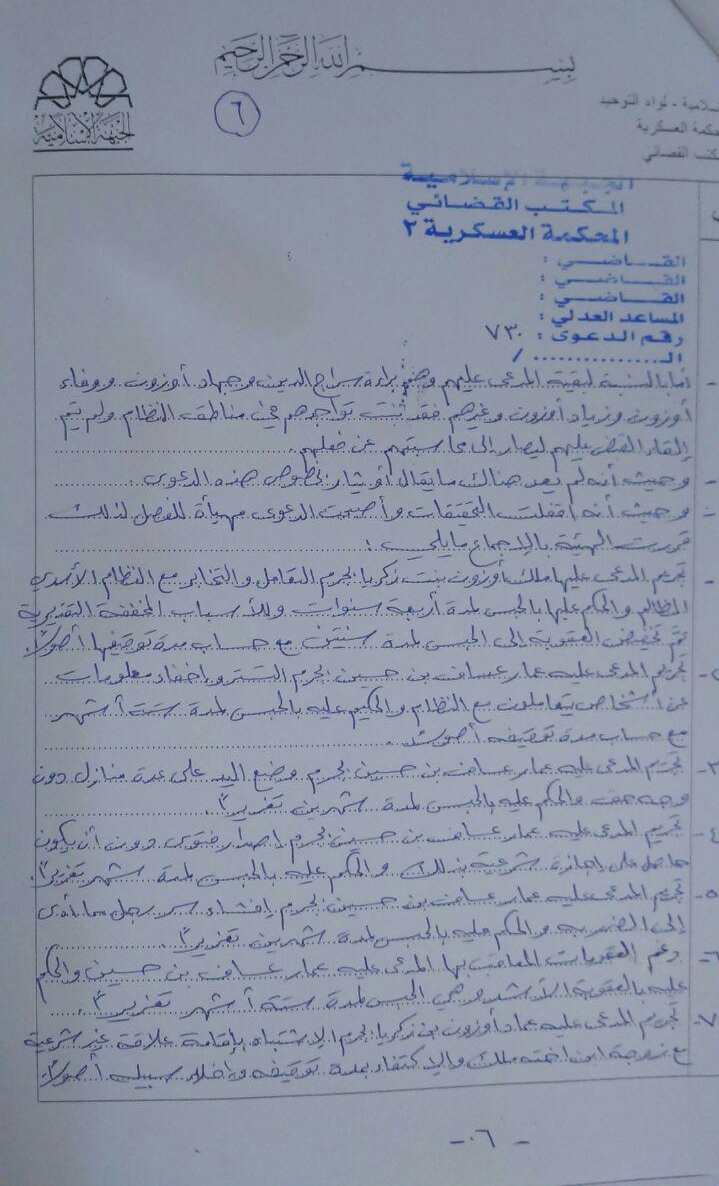 بسم الله الرحمن الرحيم
٦
الجبهة الإسلامية
سلامية - لواء التوحيد
حكمة العسكرية
كتب القضائي
الجبهة الإسلامية
المكتب القضائي
المحكمة العسكرية ٢
القاضي :
القاضي :
القاضي :
المساعد العدلي :
رقم الدعوى : ٧٣٠
الـ ............ /
- أما بالنسبة لبقية المدعى عليهم وهم براءة سراج الدين وجهاد أوزون ووفاء
أوزون وزياد أوزون وغيرهم فقد ثبت تواجدهم في مناطق النظام ولم يتم
إلقاء القبض عليهم ليصار إلى محاسبتهم عن فعلهم .
- وحيث أنه لم يعد هناك ما يقال أو يثار بخصوص هذه الدعوى .
- وحيث أنه اقفلت التحقيقات وأصبحت الدعوى مهيأة للفصل لذلك
قررت الهيئة بالإجماع مايلي :
- تجريم المدعى عليها ملك أوزون بنت زكريا بجرم التعامل والتخابر مع النظام الأسدي
الظالم والحكم عليها بالحبس لمدة أربعة سنوات وللأسباب المخففة التقديرية
تم تخفيض العقوبة إلى الحبس لمدة سنتين مع حساب مدة توقيفها أصولاً.
٢- تجريم المدعى عليه عمار عساف بن حسين بجرم التستر وإخفاء معلومات
عن أشخاص يتعاملون مع النظام والحكم عليه بالحبس لمدة ستة أشهر
مع حساب مدة توقيفه أصولاً.
٣- تجريم المدعى عليه عمار عساف بن حسين بجرم وضع اليد على عدة منازل دون
وجه حق والحكم عليه بالحبس لمدة شهرين تعزيراً .
٤- تجريم المدعى عليه عمار عساف بن حسين بجرم إصدار فتوى دون أن يكون
حاصل على إجازة شرعية بذلك والحكم عليه بالحبس لمدة شهر تعزيراً.
٥- تجريم المدعى عليه عمار عساف بن حسين بجرم إفشاء سر رجل مما أدى
إلى الضرر به والحكم عليه بالحبس لمدة شهرين تعزيراً .
٦- دغم العقوبات المعاقب بها المدعى عليه عمار عساف بن حسين والحكم
عليه بالعقوبة الأشد وهي الحبس لمدة ستة أشهر تعزيراً .
٧- تجريم المدعى عليه عماد أوزون بن زكريا بجرم الاشتباه بإقامة علاقة غير شرعية
مع زوجة ابن اخته ملك والاكتفاء بمدة توقيفه وإخلاء سبيله أصولاً.
- ٠٦ -